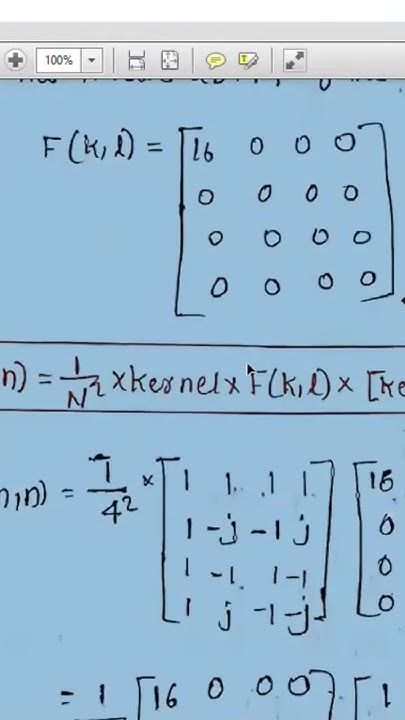 100%
F(k,l) = [16 0 0 0
0 0 0 0
0 0 0 0
0 0 0 0]
n) = 1/N² × kernel × F(k,l) × [ke
n,n) = 1/4² × [1 1 1 1 [16
1 -j -1 j 0
1 -1 1 -1 0
1 j -1 -j] 0
= 1 [16 0 0 0] [1